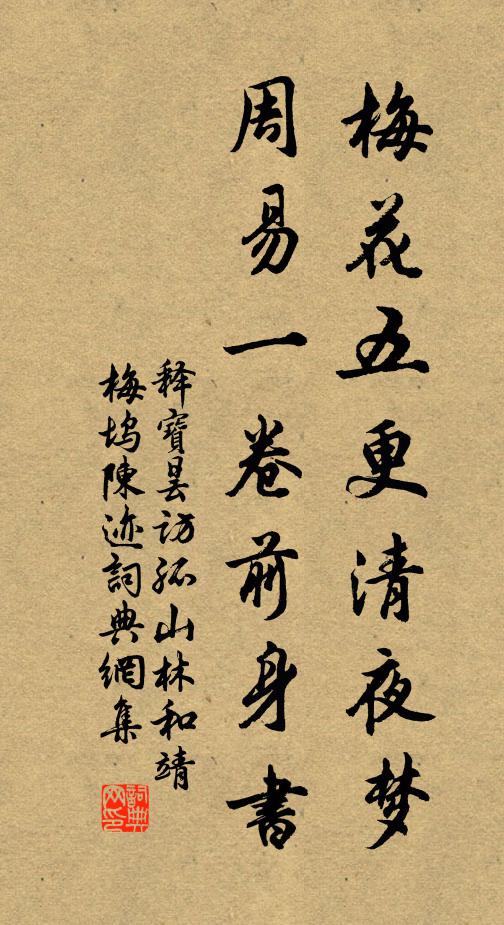 梅花五更清夜梦
周易一卷前身書
释寶曇訪孤山林和靖
梅塢陳迹詞典網集